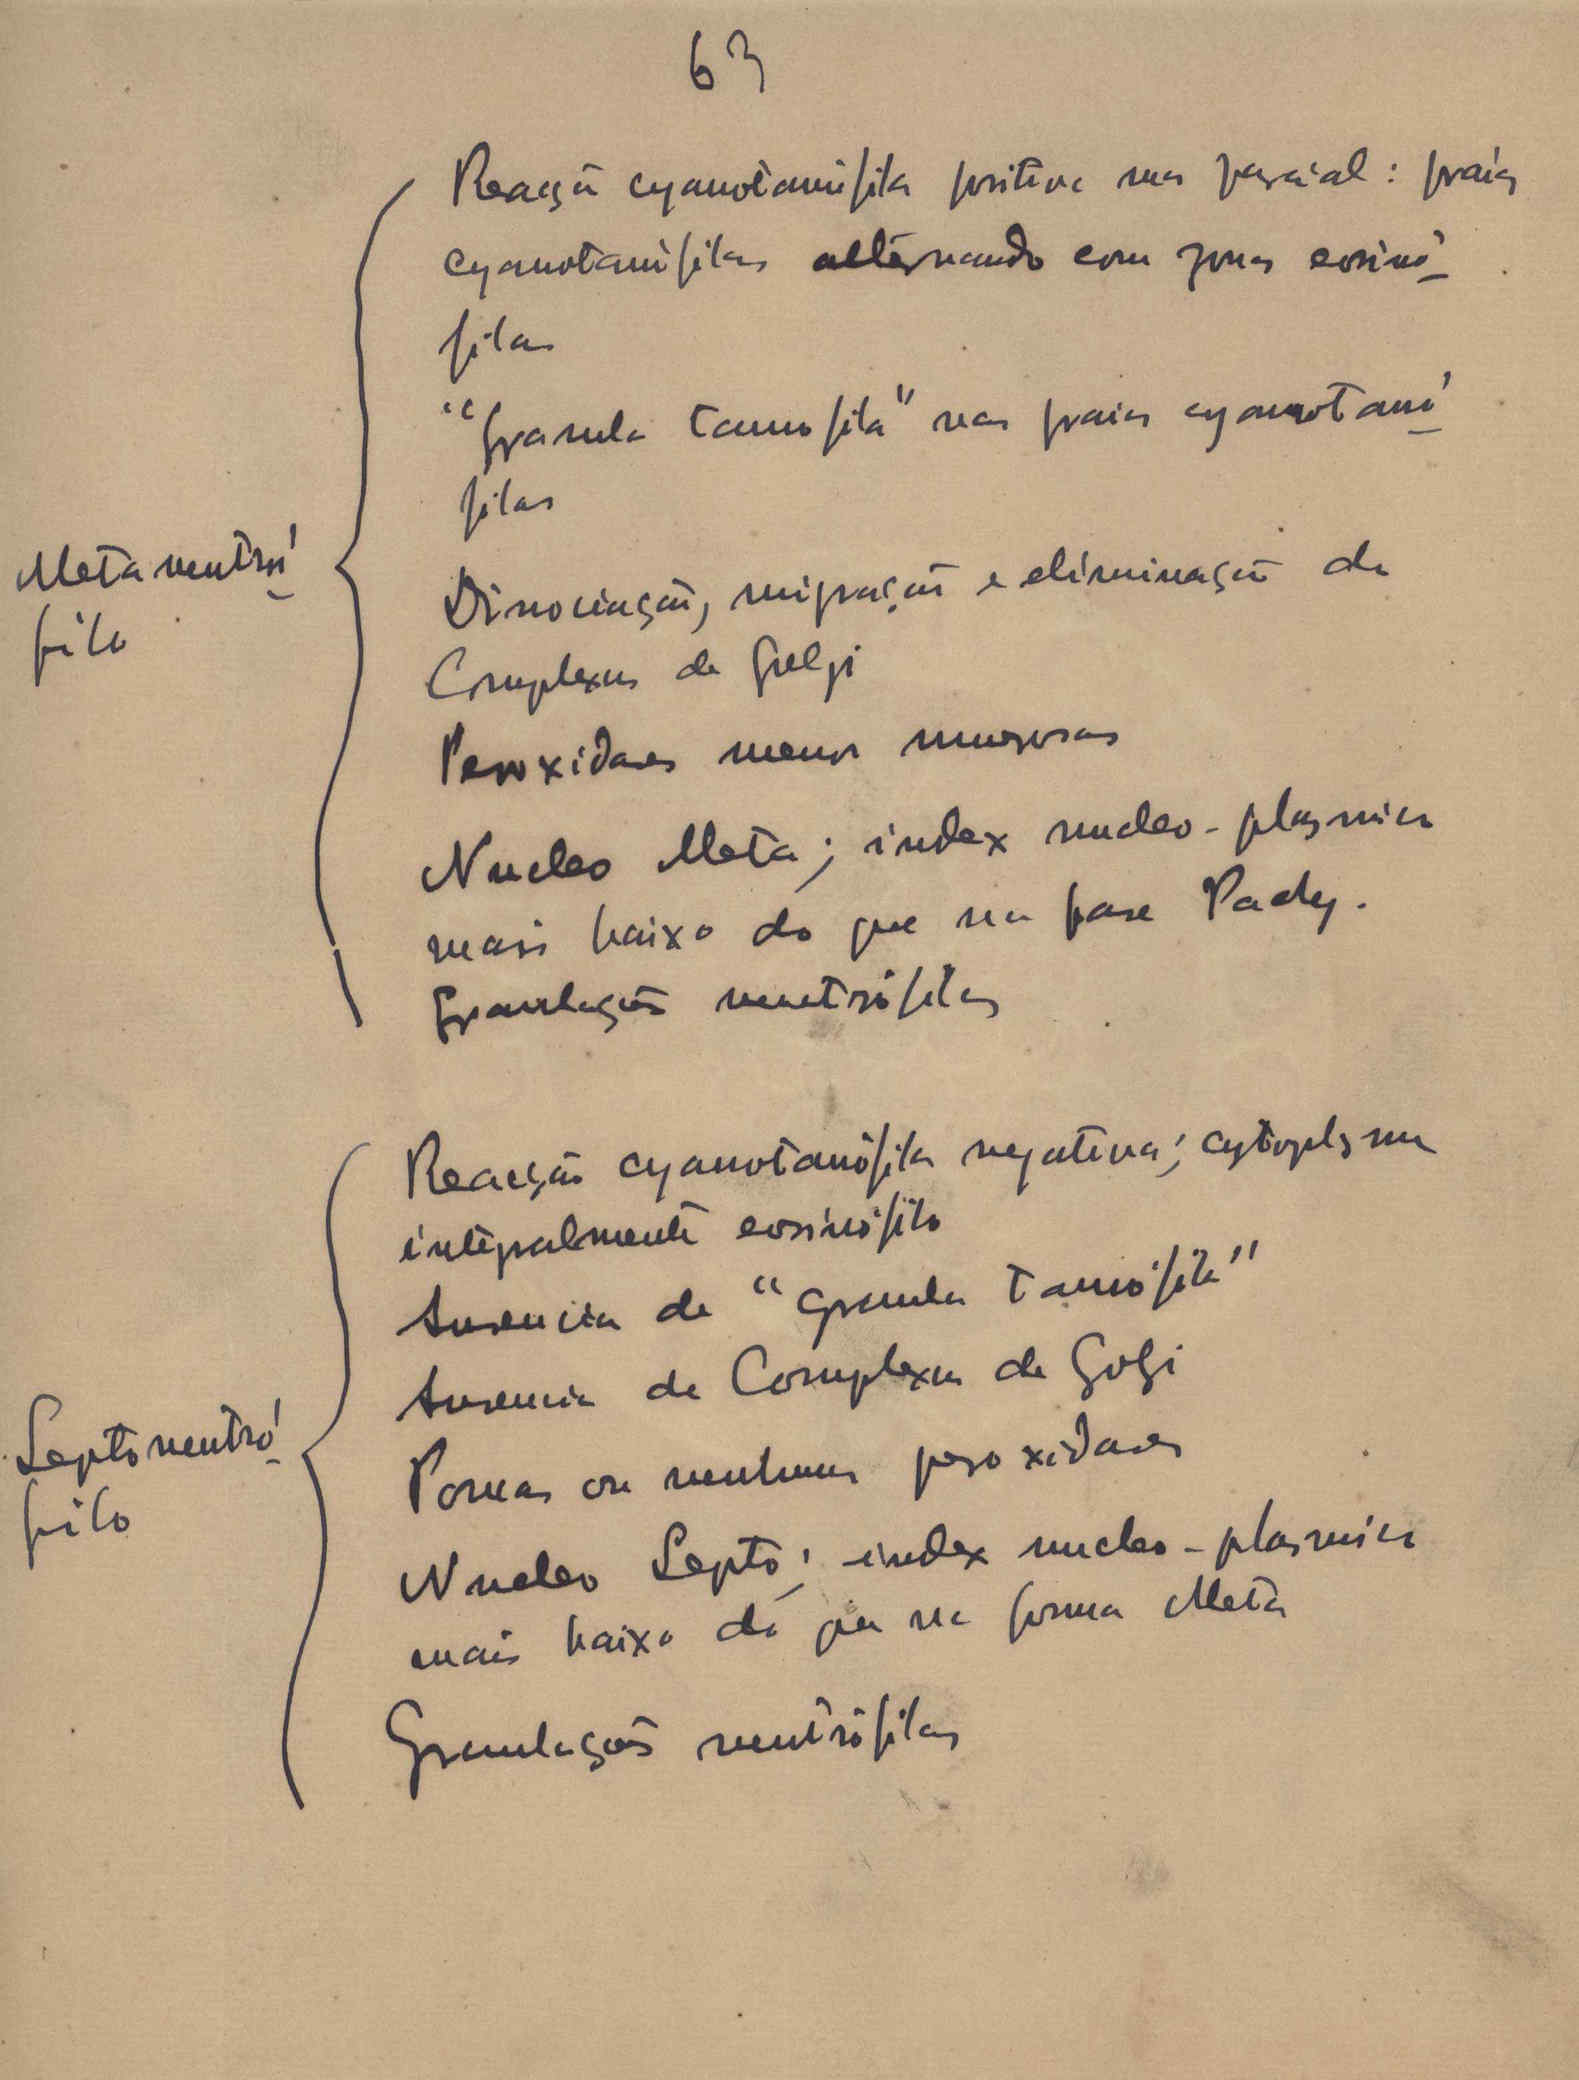 63
Reacção cyanotanófila positiva mas parcial: praias
cyanotanófilas alternando com zonas eosinó-
filas
"Granula tanofila" nas praias cyanotanó-
filas
Metaneutró-
filo
Dissociação, migração e eliminação do
Complexus de Golgi
Peroxidases menos numerosas
Nucleo Meta; index nucleo-plasmico
mais baixo do que na fase Pachy.
Granulações neutrófilas
Reacção cyanotanófila negativa; cytoplasma
integralmente eosinófilo
Ausencia de "Granula tanófila"
Ausencia de Complexus de Golgi
Leptoneutró-
filo
Poucas ou nenhumas peroxidases
Nucleo Lepto; index nucleo-plasmico
mais baixo do que na forma Meta
Granulações neutrófilas